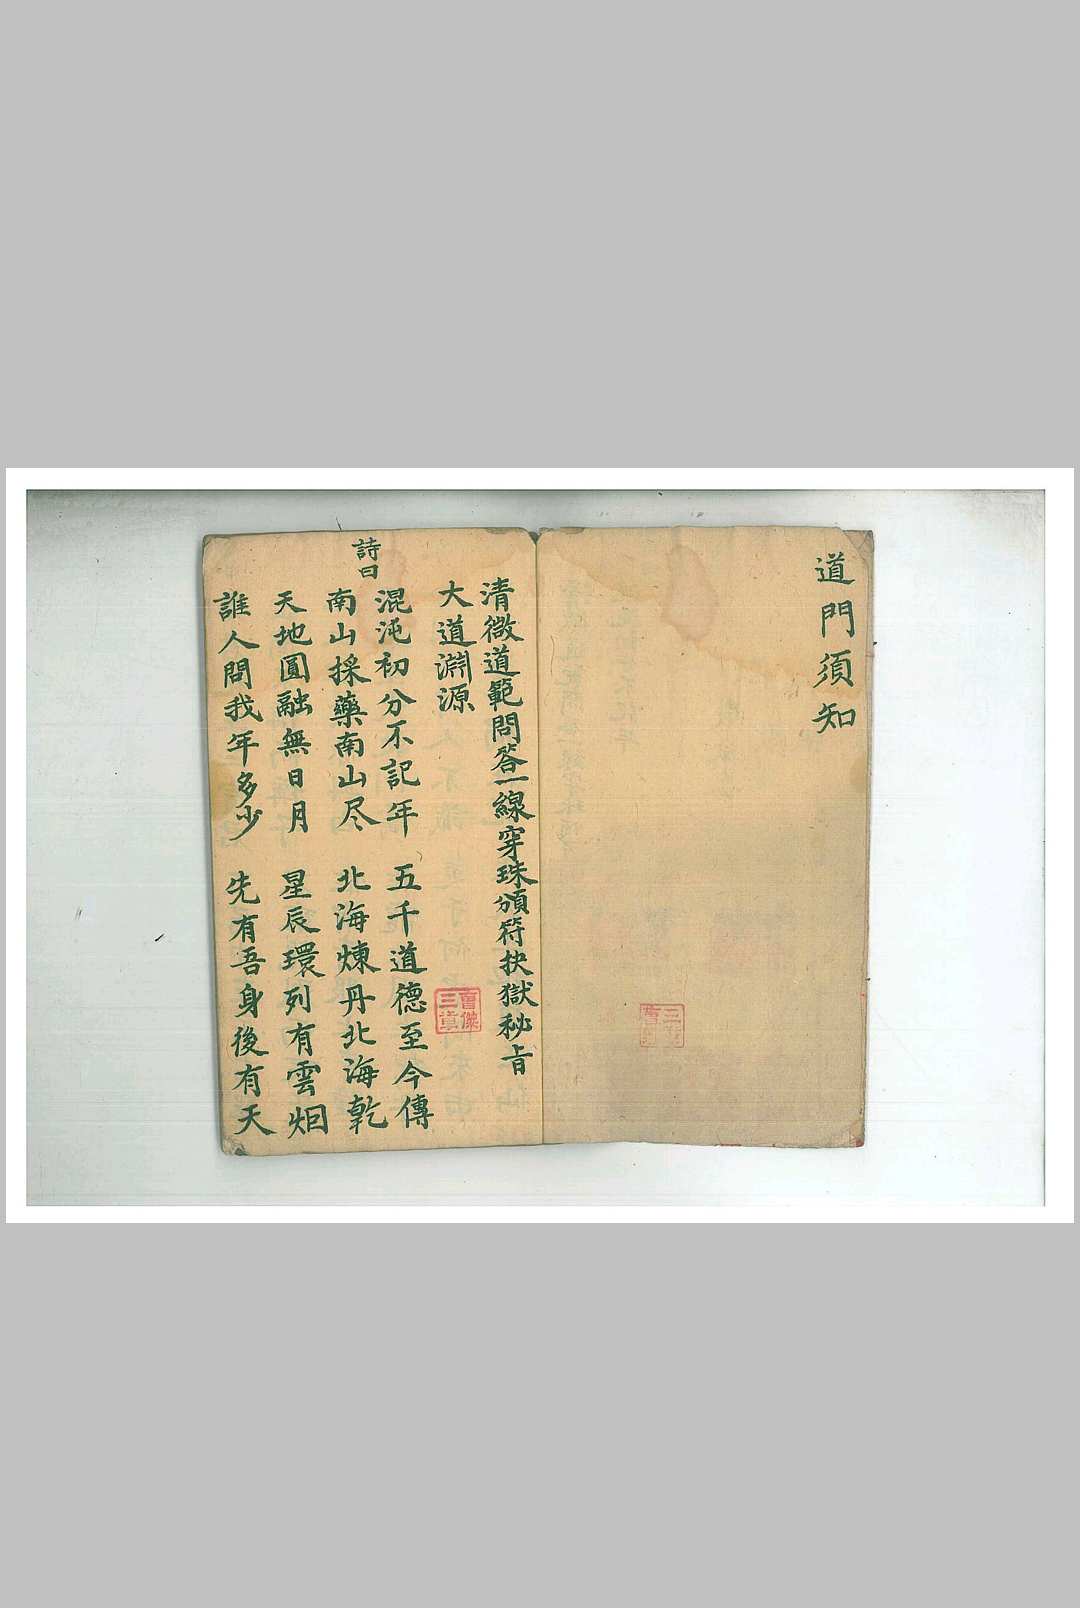 道門須知
清微道範問答一線穿珠頒符抉獄秘旨
大道淵源
詩曰
混沌初分不記年 五千道德至今傳
南山採藥南山尽 北海煉丹北海乾
天地圓融無日月 星辰環列有雲烟
誰人問我年多少 先有吾身後有天